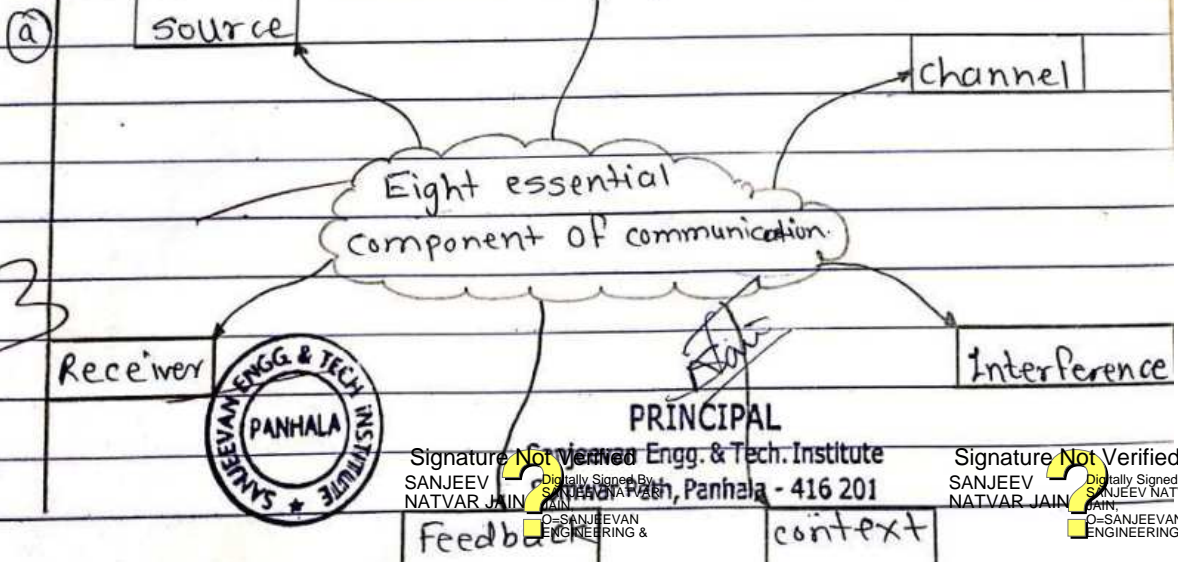 (a)
Source
Channel
Eight essential
component of communication.
Receiver
Interference
SANJEEVAN ENGG & TECH INSTITUTE
PANHALA
PRINCIPAL
Sanjeevan Engg. & Tech. Institute
Panhala - 416 201
Signature Not Verified
SANJEEV
NATVAR JAIN
Digitally Signed By
SANJEEV NATVAR
JAIN,
O=SANJEEVAN
ENGINEERING &
Signature Not Verified
SANJEEV
NATVAR JAIN
Digitally Signed
SANJEEV NAT
JAIN,
O=SANJEEVAN
ENGINEERING
Feedback
context